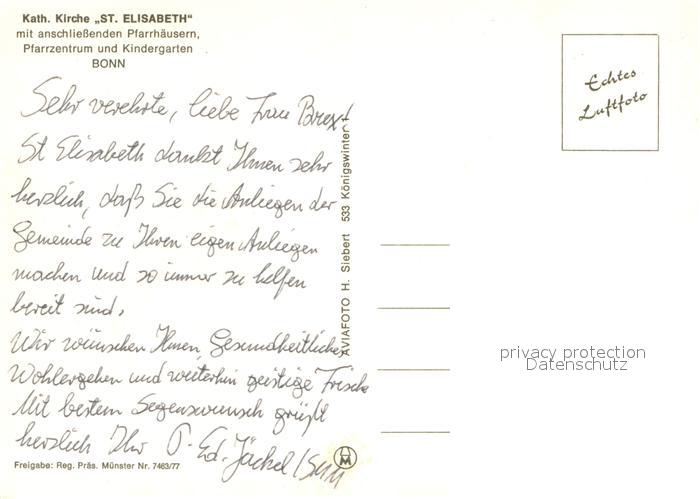 Kath. Kirche „ST. ELISABETH“
mit anschließenden Pfarrhäusern,
Pfarrzentrum und Kindergarten
BONN
Echtes
Luftfoto
Sehr verehrte, liebe Frau
St Elisabeth dankt Ihnen sehr
herzlich, daß Sie die Anliegen der
Gemeinde zu Ihren eigen Anliegen
machen und so immer zu helfen
bereit sind.
Wir wünschen Ihnen Gesundheitliches
Wohlergehen und weiterhin geistige Frische
Mit bestem Segenswunsch grüßt
herzlich Ihr P. Ed. Jäckel
AVIAFOTO H. Siebert 533 Königswinter
Freigabe: Reg. Präs. Münster Nr. 7463/77
privacy protection
Datenschutz